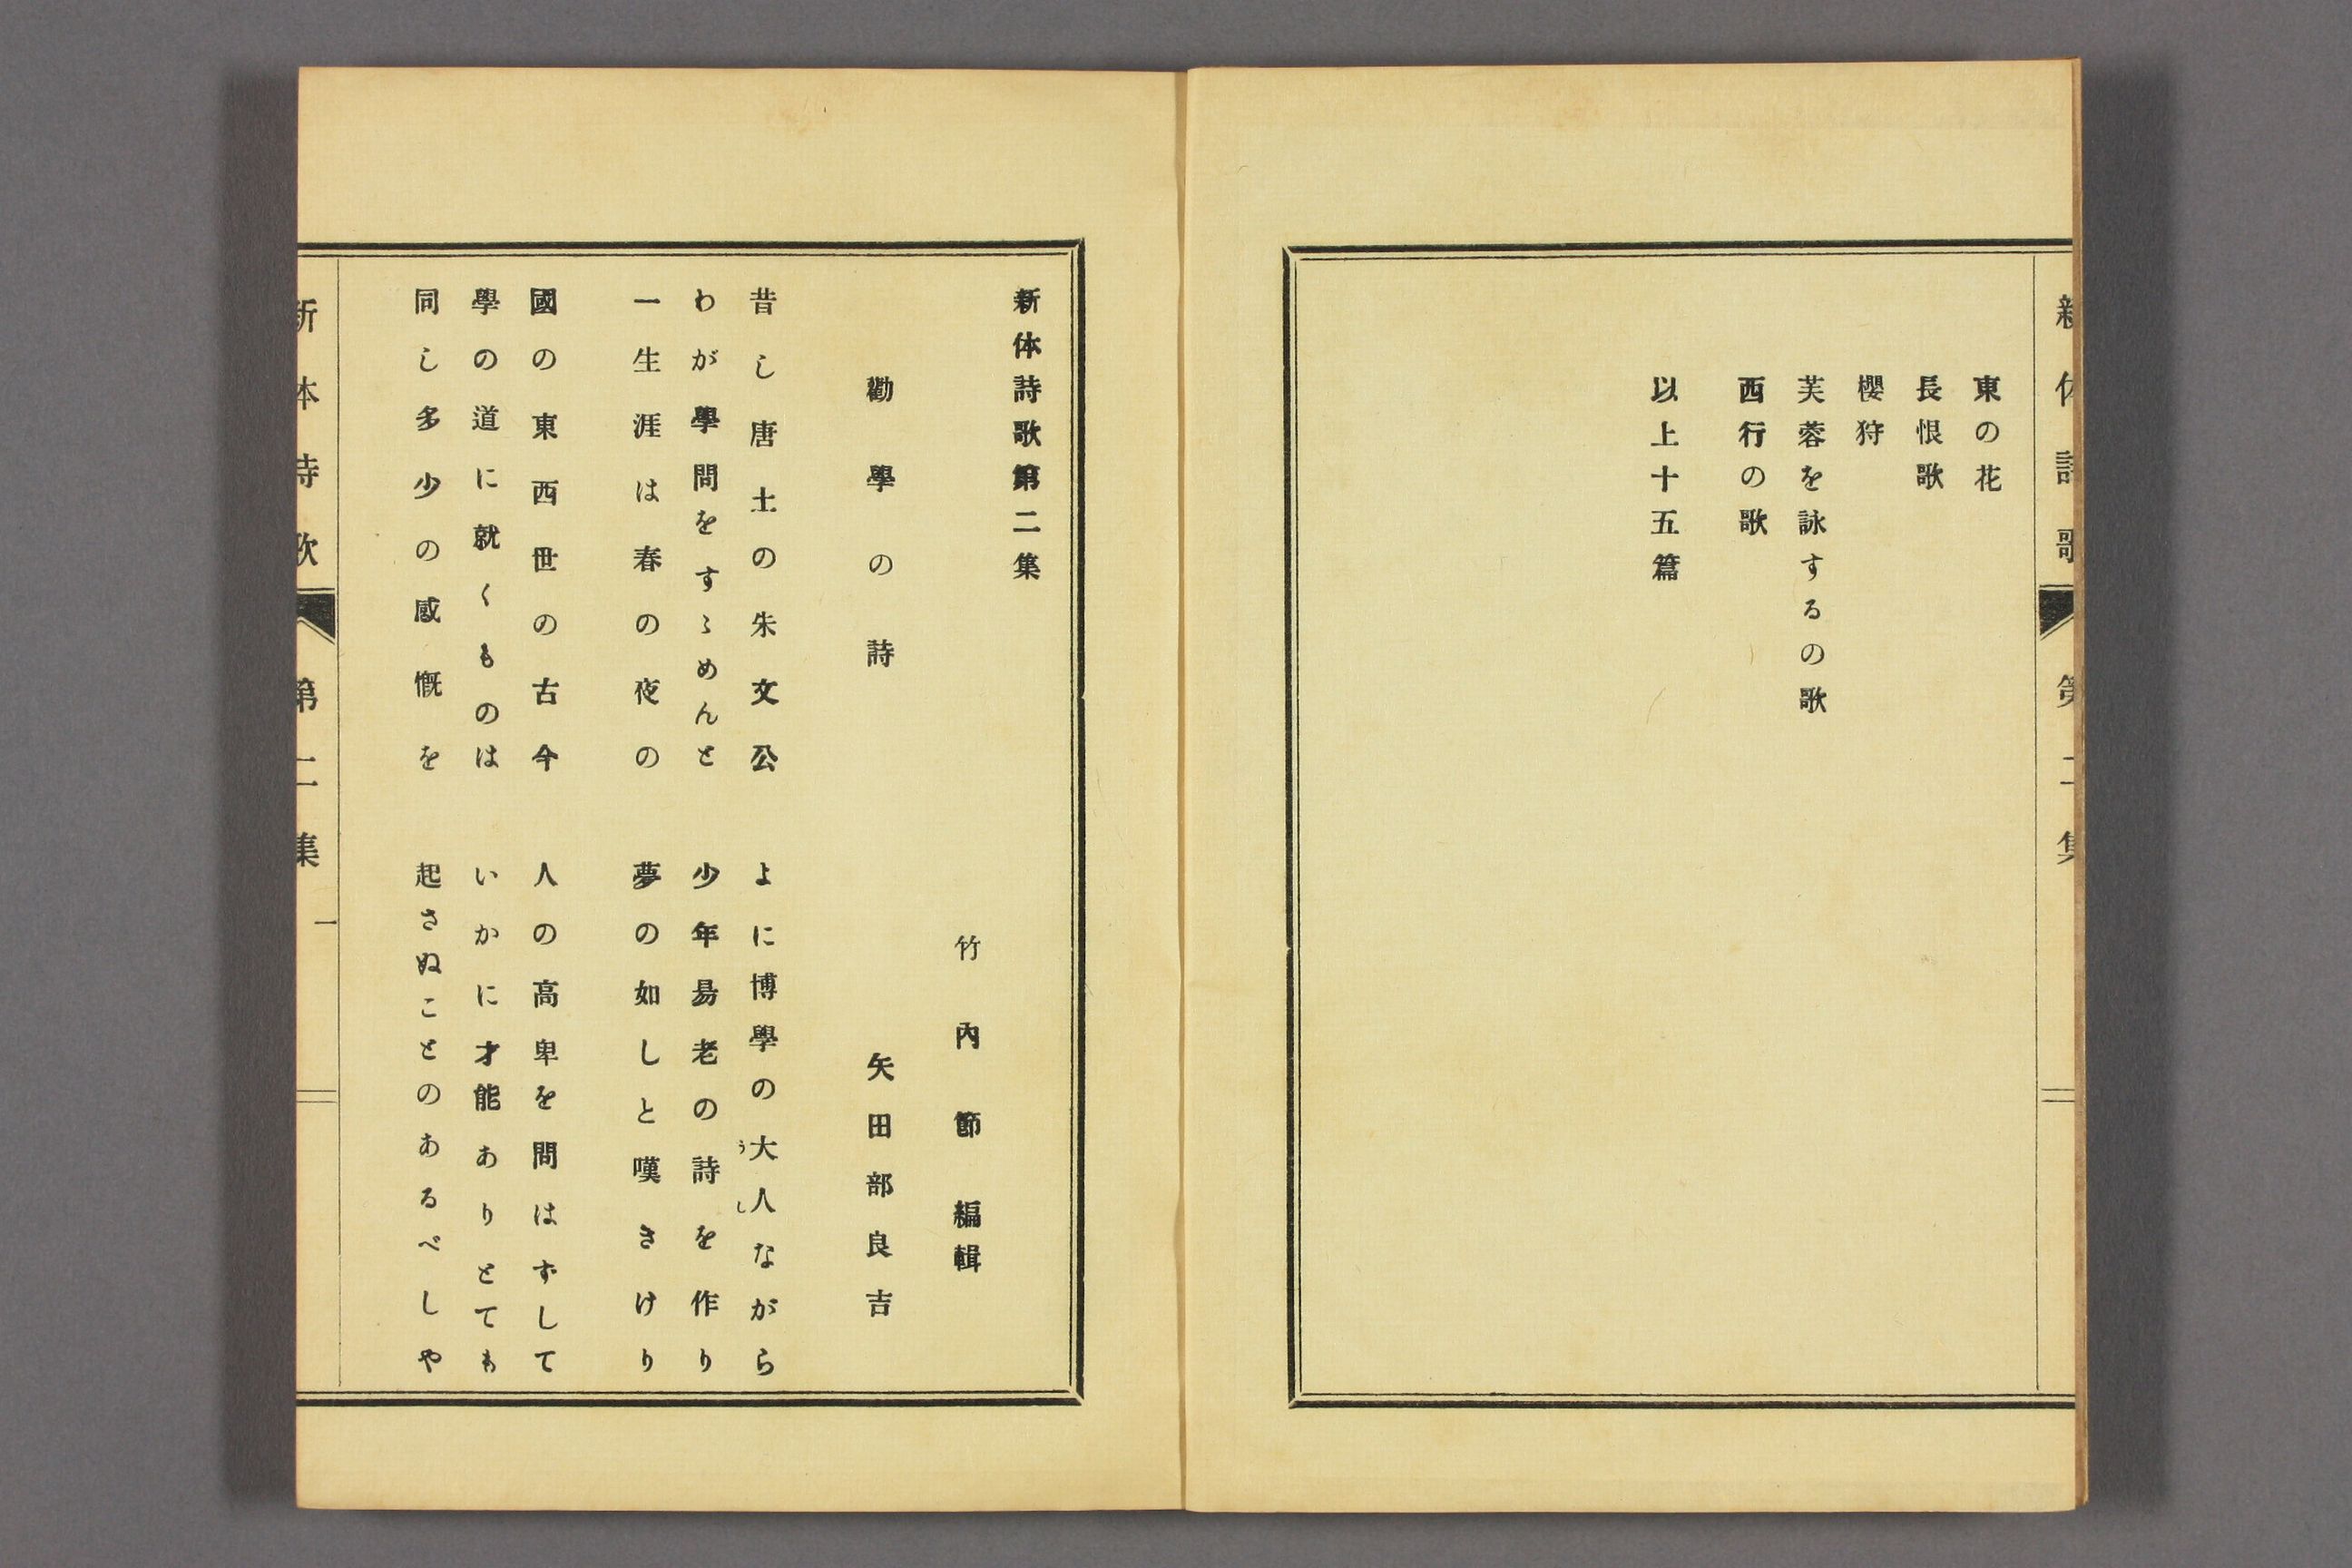 東の花
長恨歌
櫻狩
芙蓉を詠するの歌
西行の歌
以上十五篇
新体詩歌第二集
竹內節編輯
勸學の詩
矢田部良吉
昔し唐土の朱文公 よに博學の大人ながら
うし
わが學問をすゝめんと 少年易老の詩を作り
一生涯は春の夜の 夢の如しと嘆きけり
國の東西世の古今 人の高卑を問はずして
學の道に就くものは いかに才能ありとても
同し多少の感慨を 起さぬことのあるべしや
新体詩歌 第二集 一